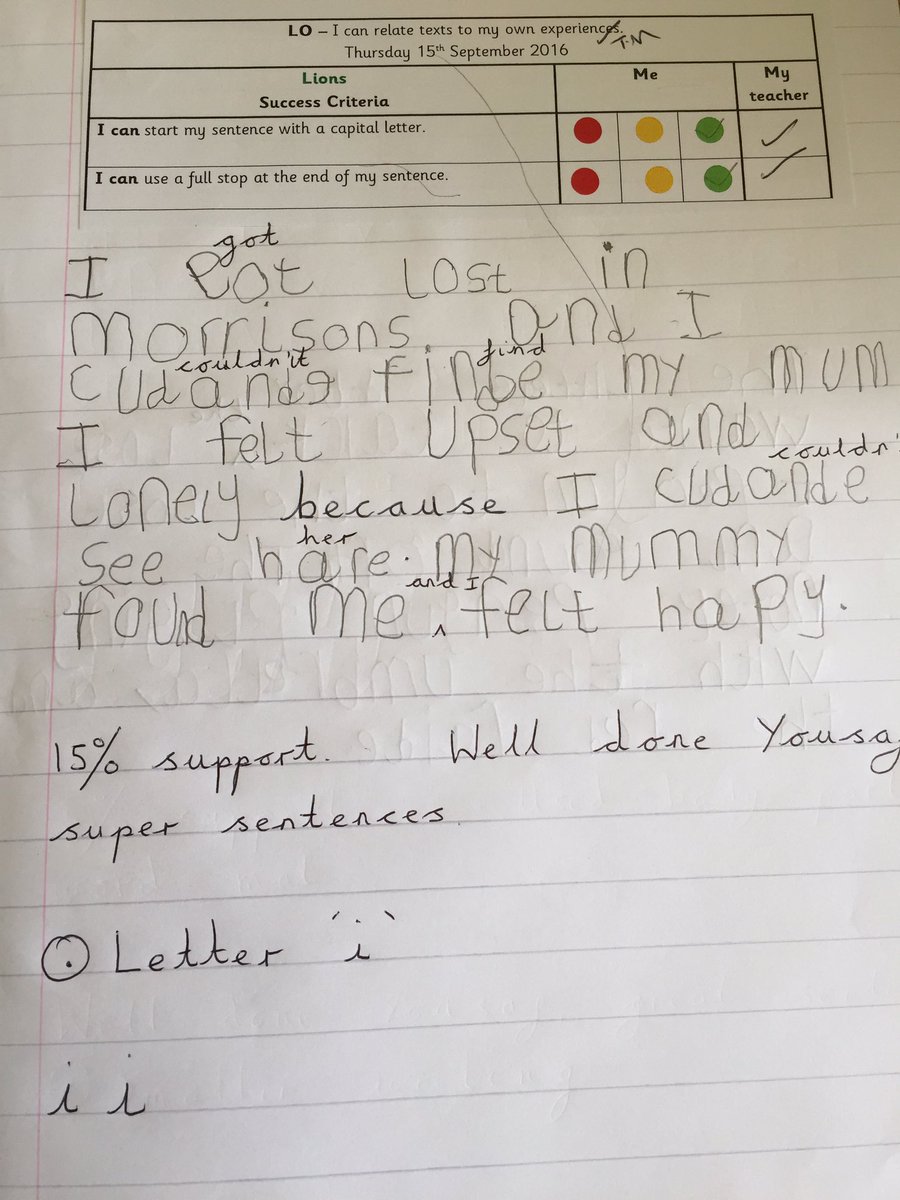 LO – I can relate texts to my own experiences. T.M
Thursday 15th September 2016
Lions
Success Criteria
Me
My teacher
I can start my sentence with a capital letter.
I can use a full stop at the end of my sentence.
got
I Eot lost in
morrisons. and I
couldn't find
cudande finde my mum
I felt upset and
couldn'
lonely because I cudande
her
see hare. my mummy
and I
found me ‸ felt hapy.
15% support. Well done
super sentences.
Letter 'i'
i i